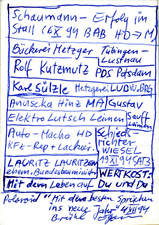 Schaumann - Erfolg im
Stall CGX 94 BAB HD → M
Bäckerei Metzger Tübingen-
Lustnau
Rolf Kutzmutz PDS Potsdam
Karl Sülzle Metzgerei LUDW.BRG
Anuscka Hinz MA/Gustav
Elektro Lutsch Leimen
Auto-Macho HD
KFZ-Rep + Lackier.
Schieds-
richter
WIESEL
LAURITZ LAURITZEN
einem. Bundesbauminister
WERTKOST:
Mit dem Leben auf Du und Du
Polaroid "Mit den besten Sprüchen
ins neue Jahr"
Brücke